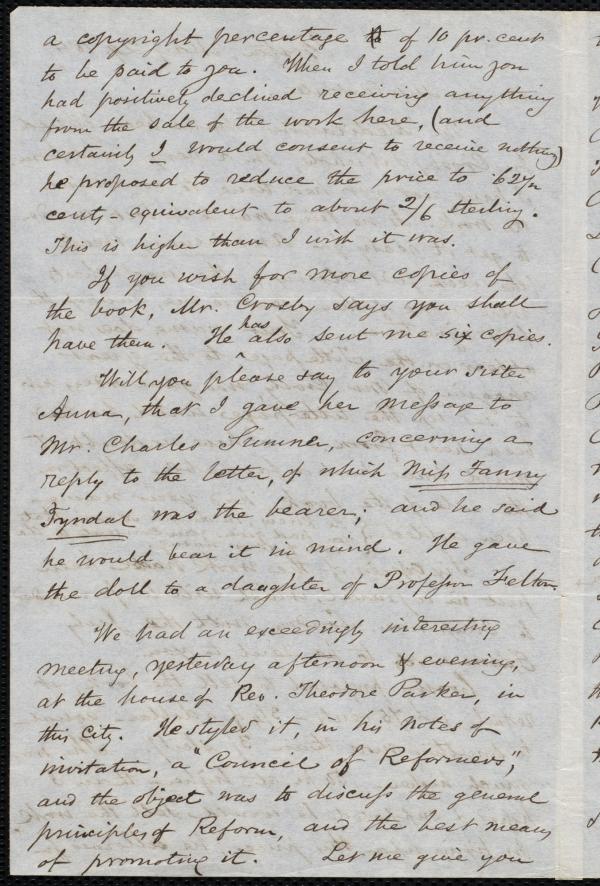 a copyright percentage of 10 pr. cent
to be paid to you. When I told him you
had positively declined receiving anything
from the sale of the work here, (and
certainly I would consent to receive nothing)
he proposed to reduce the price to 62 1/2
cents - equivalent to about 2/6 sterling.
This is higher than I wish it was.
If you wish for more copies of
the book, Mr. Crosby says you shall
have them. He has also sent me six copies.
Will you please say to your sister
Anna, that I gave her message to
Mr. Charles Sumner, concerning a
reply to the letter, of which Miss Fanny
Tyndal was the bearer; and he said
he would bear it in mind. He gave
the doll to a daughter of Professor Felton.
We had an exceedingly interesting
meeting, yesterday afternoon & evening,
at the house of Rev. Theodore Parker, in
this city. He styled it, in his notes of
invitation, a "Council of Reformers",
and the object was to discuss the general
principles of Reform, and the best means
of promoting it. Let me give you